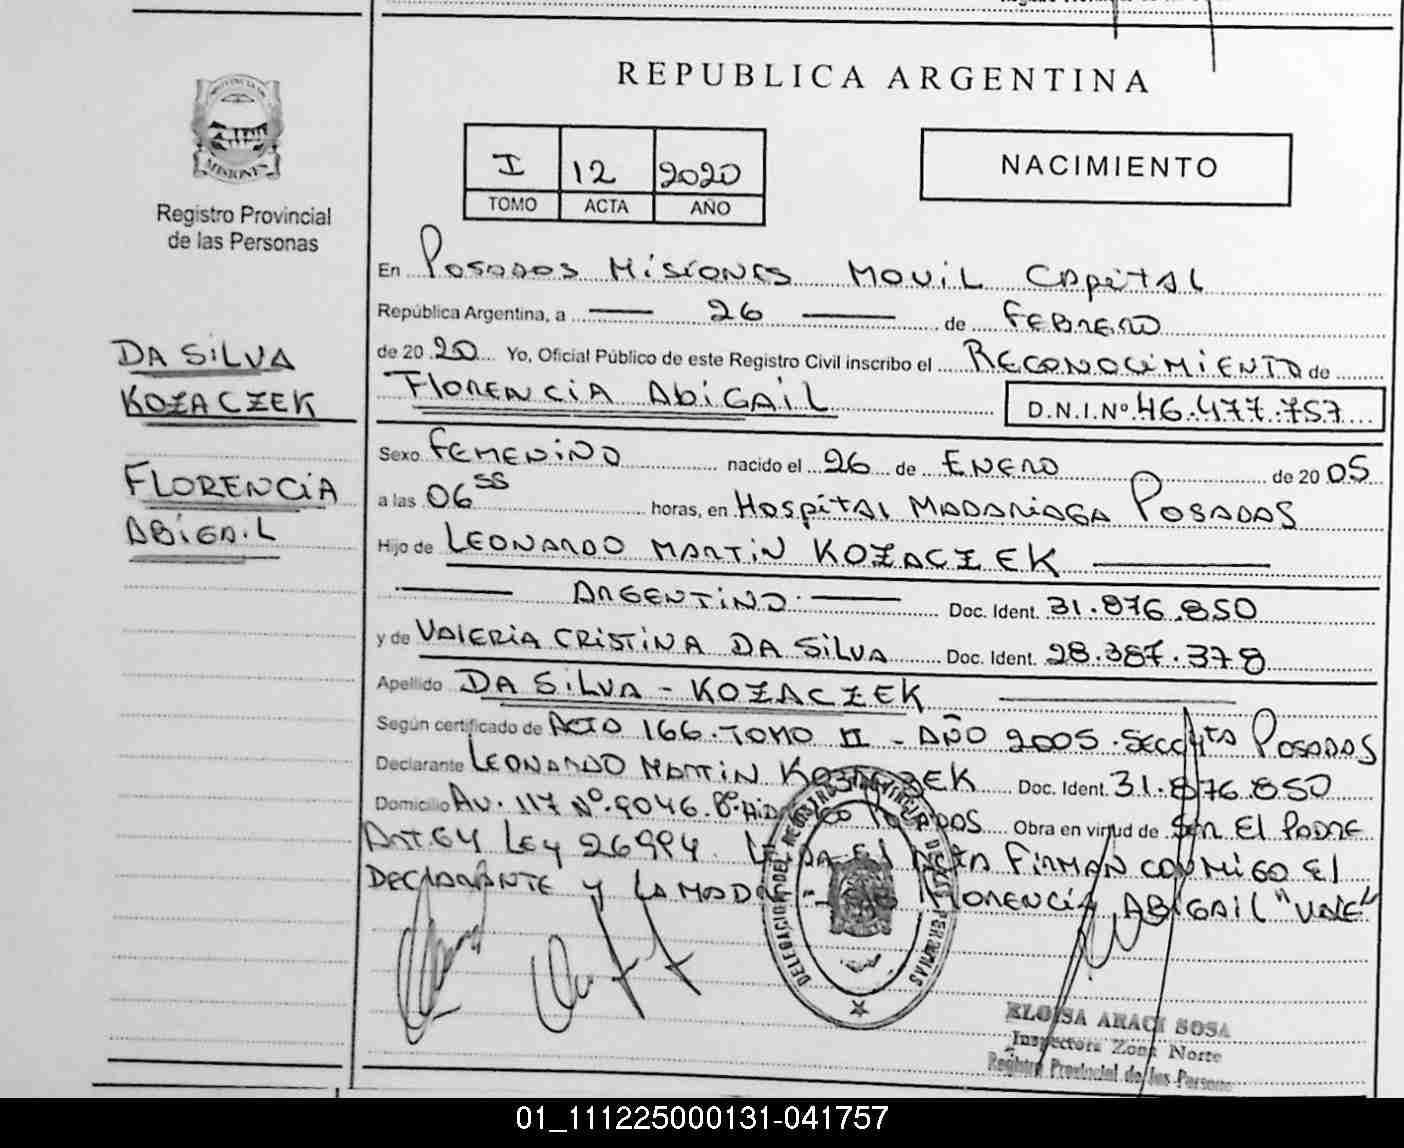 REPUBLICA ARGENTINA
PROVINCIA DE
MISIONES
Registro Provincial
de las Personas
I 12 2020
TOMO ACTA AÑO
NACIMIENTO
En Posadas Misiones Movil Capital
República Argentina, a — 26 — de FEBRERO
de 2020 Yo, Oficial Público de este Registro Civil inscribo el RECONOCIMIENTO de
FLORENCIA ABIGAIL D.N.I.Nº 46.477.757
DA SILVA
KOZACZEK
FLORENCIA
ABIGAIL
Sexo FEMENINO nacido el 26 de ENERO de 2005
a las 06 55 horas, en HOSPITAL MADARIAGA POSADAS
Hijo de LEONARDO MARTIN KOZACZEK —
— ARGENTINO — Doc. Ident. 31.876.850
y de VALERIA CRISTINA DA SILVA Doc. Ident. 28.387.378
Apellido DA SILVA - KOZACZEK —
Según certificado de ACTA 166. TOMO II - AÑO 2005. SECC 4ta POSADAS
Declarante LEONARDO MARTIN KOZACZEK Doc. Ident. 31.876.850
Domicilio AV. 117 Nº 9046. Bº POSADAS Obra en virtud de SER EL PADRE
ART. 64 LEY 26994. LEIDA EL ACTA FIRMAN CONMIGO EL
DECLARANTE Y LA MADRE - FLORENCIA ABIGAIL "VALE"
DELEGACION DEL REGISTRO PROVINCIAL DE LAS PERSONAS
ELOISA ARACI SOSA
Inspectora Zona Norte
Registro Provincial de las Personas
01_111225000131-041757